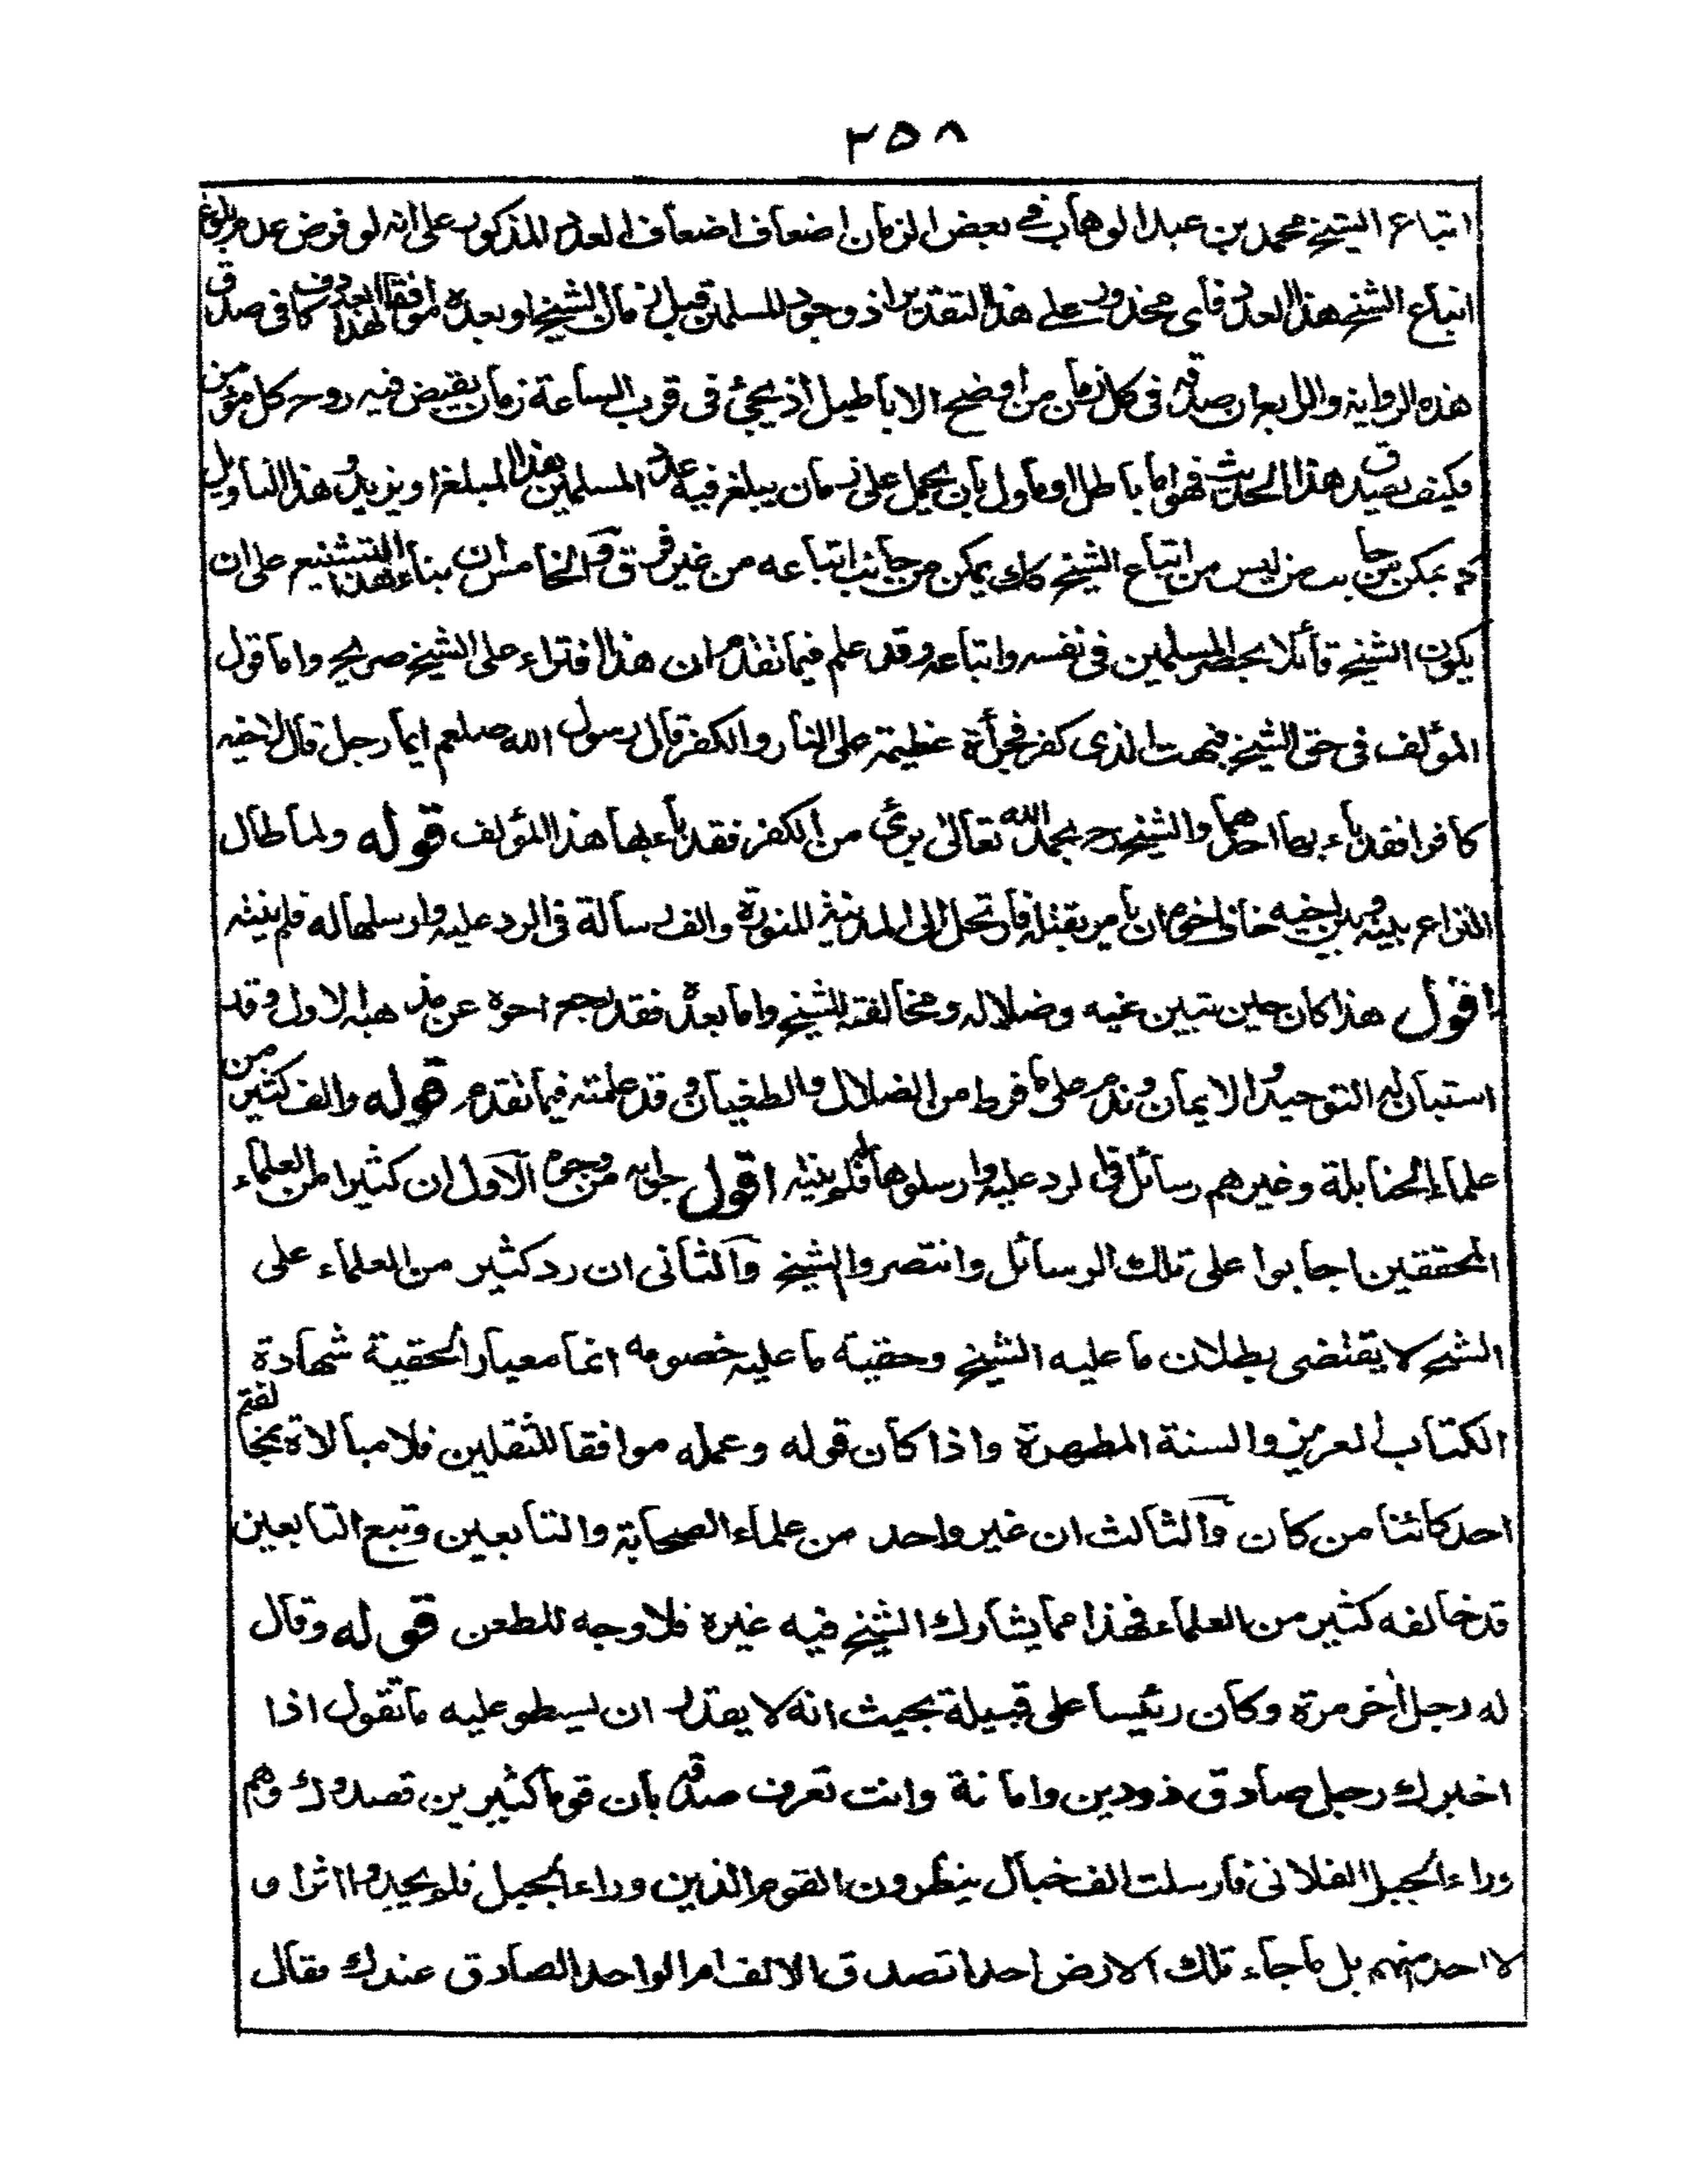 ٢٥٨
اتباع الشيخ محمد بن عبد الوهاب في بعض الزمان اضعاف اضعاف العدد المذكور على انه لو فرض عدم بلوغ
اتباع الشيخ هذا العدد فاى محذور على هذا التقدير اذ وجود المسلمين قبل زمان الشيخ او بعده موافقا لهذا العدد كاف فى صدق
هذه الرواية والرابع ان صدقه فى كل زمان من اوضح الاباطيل اذ يجئ فى قرب الساعة زمان يقبض فيه روح كل مؤمن
فكيف يصدق هذا الحديث فهو اما باطل او ماول بان يحمل على زمان يبلغ فيه عدد المسلمين هذا المبلغ او يزيد و هذا التاويل
كما يمكن من جانب من ليس من اتباع الشيخ كذلك يمكن من جانب اتباعه من غير فرق والخامس ان بناء هذا التشنيع على ان
يكون الشيخ قائلا بحصر المسلمين فى نفسه واتباعه وقد علم فيما تقدم ان هذا افتراء على الشيخ صريح واما قول
المؤلف فى حق الشيخ فبهت الذى كفر فجرأة عظيمة على النار والكفر قال رسول الله صلعم ايما رجل قال لاخيه
كافر افقد باء بها احدهما والشيخ رح بحمد الله تعالى برئ من الكفر فقد باء بها هذا المؤلف قوله ولما طال
النزاع بينه وبين اخيه خاف اخوه ان يامر بقتله فارتحل الى المدينة المنورة والف رسالة فى الرد عليه وارسلها له فلم ينته
اقول هذا كان حين تبين غيه وضلاله ومخالفته للشيخ واما بعده فقد رجع اخوه عن مذهبه الاول وقد
استبان له التوحيد والايمان وندم على ما فرط من الضلال والطغيان وقد علمته فيما تقدم قوله والف كثير من
علماء الحنابلة وغيرهم رسائل فى الرد عليه وارسلوها له فلم ينته اقول جوابه من وجوه الاول ان كثيرا من العلماء
المحققين اجابوا على تلك الرسائل وانتصروا للشيخ والثانى ان رد كثير من العلماء على
الشيخ لا يقتضى بطلان ما عليه الشيخ وحقية ما عليه خصومه انما معيار الحقية شهادة
الكتاب العزيز والسنة المطهرة واذا كان قوله وعمله موافقا للثقلين فلا مبالاة بمخالفة
احد كائنا من كان والثالث ان غير واحد من علماء الصحابة والتابعين وتبع التابعين
قد خالفه كثير من العلماء فهذا مما يشارك الشيخ فيه غيره فلا وجه للطعن قوله وقال
له رجل اخر مرة وكان رئيسا على قبيلة بحيث انه لا يقدر ان يسطو عليه ما تقول اذا
اخبرك رجل صادق ذو دين وامانة وانت تعرف صدقه بان قوما كثيرين قصدوك وهم
وراء الجبل الفلانى فارسلت الف خيال ينظرون القوم الذين وراء الجبل فلم يجدوا اثرا و
لا احد منهم بل ما جاء تلك الارض احد اتصدق الالف ام الواحد الصادق عندك فقال